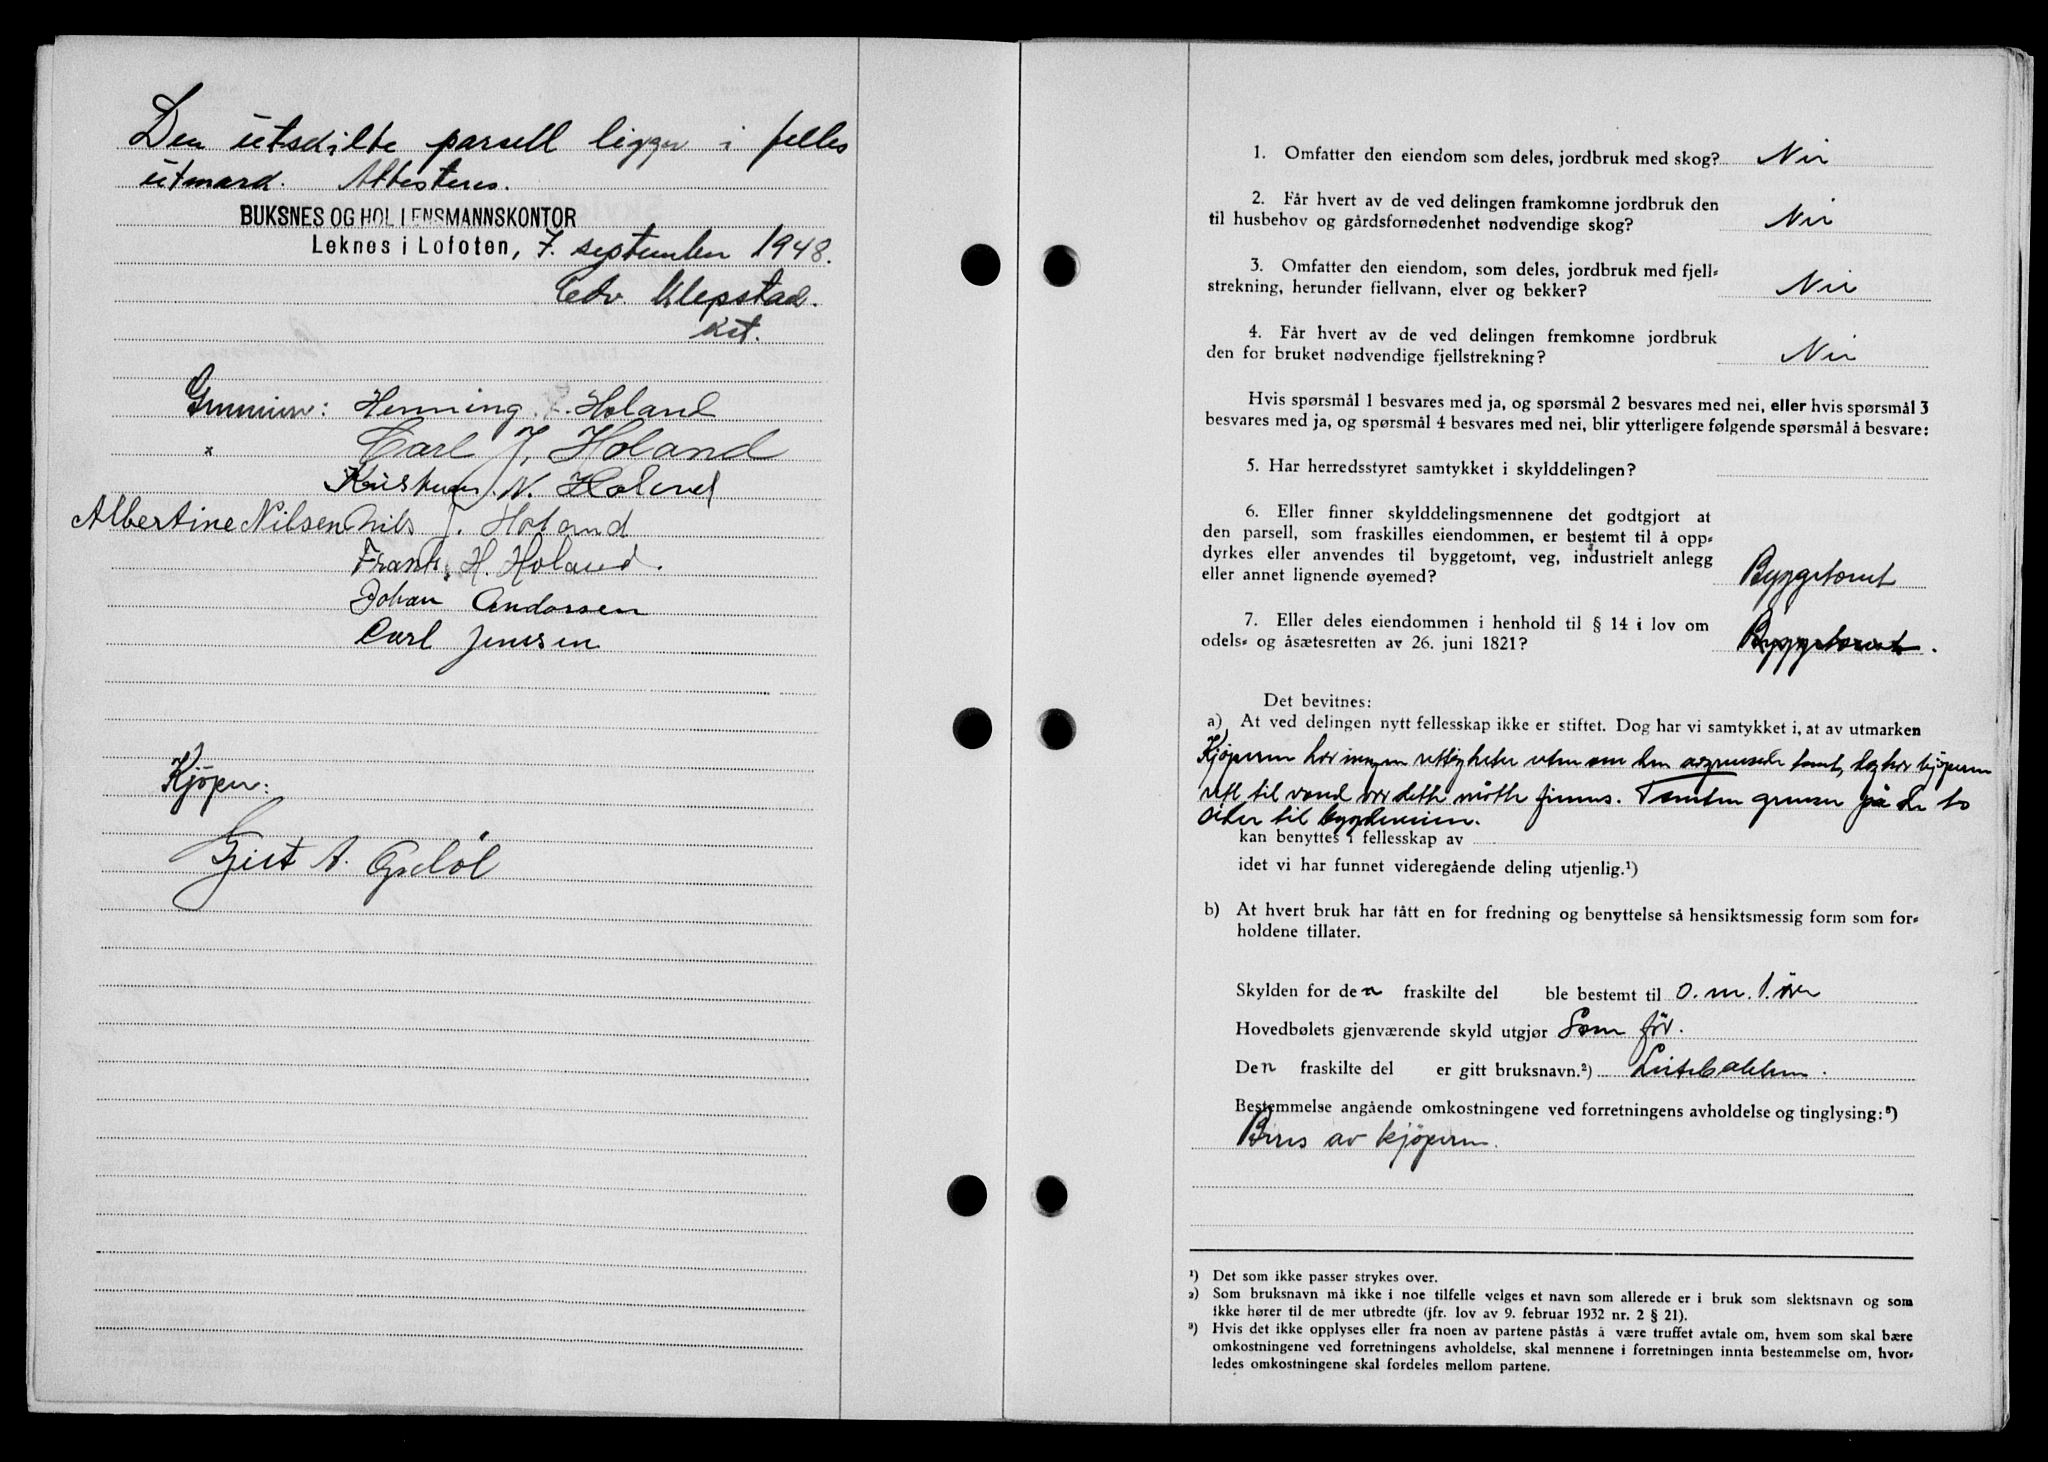 Den utskilte parsell ligger i felles
utmark. Attesteres.
BUKSNES OG HOL LENSMANNSKONTOR
Leknes i Lofoten, 7. september 1948.
Edv. Klepstad.
kst.
Henning J. Holand
Carl J. Holand
Kristian N. Holand
Albertine Nilsen Nils J. Holand
Frank H. Holand.
Johan Andorsen
Carl Jenssen
Kjöper:
A.
1. Omfatter den eiendom som deles, jordbruk med skog? Nei
2. Får hvert av de ved delingen framkomne jordbruk den
til husbehov og gårdsfornødenhet nødvendige skog? Nei
3. Omfatter den eiendom, som deles, jordbruk med fjell-
strekning, herunder fjellvann, elver og bekker? Nei
4. Får hvert av de ved delingen fremkomne jordbruk
den for bruket nødvendige fjellstrekning? Nei
Hvis spørsmål 1 besvares med ja, og spørsmål 2 besvares med nei, eller hvis spørsmål 3
besvares med ja, og spørsmål 4 besvares med nei, blir ytterligere følgende spørsmål å besvare:
5. Har herredsstyret samtykket i skylddelingen?
6. Eller finner skylddelingsmennene det godtgjort at
den parsell, som fraskilles eiendommen, er bestemt til å opp-
dyrkes eller anvendes til byggetomt, veg, industrielt anlegg
eller annet lignende øyemed? Byggetomt
7. Eller deles eiendommen i henhold til § 14 i lov om
odels- og åsætesretten av 26. juni 1821? Byggetomt.
Det bevitnes:
a) At ved delingen nytt fellesskap ikke er stiftet. Dog har vi samtykket i, at av utmarken
Kjöperen har ingen rettigheter uten om den avgrensede tomt, dog har kjöperen
rett til vand om dette måtte finnes. Tomten grenser på de to
sider til bygdeveien.
kan benyttes i fellesskap av
idet vi har funnet videregående deling utjenlig.¹)
b) At hvert bruk har fått en for fredning og benyttelse så hensiktsmessig form som for-
holdene tillater.
Skylden for den fraskilte del ble bestemt til 0. m. 1. øre
Hovedbølets gjenværende skyld utgjør Som för.
Den fraskilte del er gitt bruksnavn.²) Litlebakken.
Bestemmelse angående omkostningene ved forretningens avholdelse og tinglysing:³)
Bæres av kjöperen.
¹) Det som ikke passer strykes over.
²) Som bruksnavn må ikke i noe tilfelle velges et navn som allerede er i bruk som slektsnavn og som
ikke hører til de mer utbredte (jfr. lov av 9. februar 1932 nr. 2 § 21).
³) Hvis det ikke opplyses eller fra noen av partene påstås å være truffet avtale om, hvem som skal bære
omkostningene ved forretningens avholdelse, skal mennene i forretningen innta bestemmelse om, hvor-
ledes omkostningene skal fordeles mellom partene.